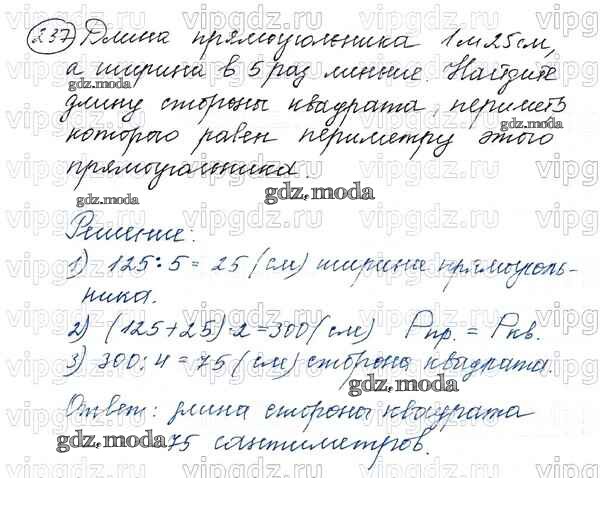 237 Длина прямоугольника 1м25см,
а ширина в 5 раз меньше. Найдите
длину стороны квадрата, периметр
которого равен периметру этого
прямоугольника.
Решение:
1) 125:5=25(см) ширина прямоуголь-
ника.
2) (125+25)·2=300(см) Pпр.=Pкв.
3) 300:4=75(см) сторона квадрата.
Ответ: длина стороны квадрата
75 сантиметров.
gdz.moda
vipgdz.ru